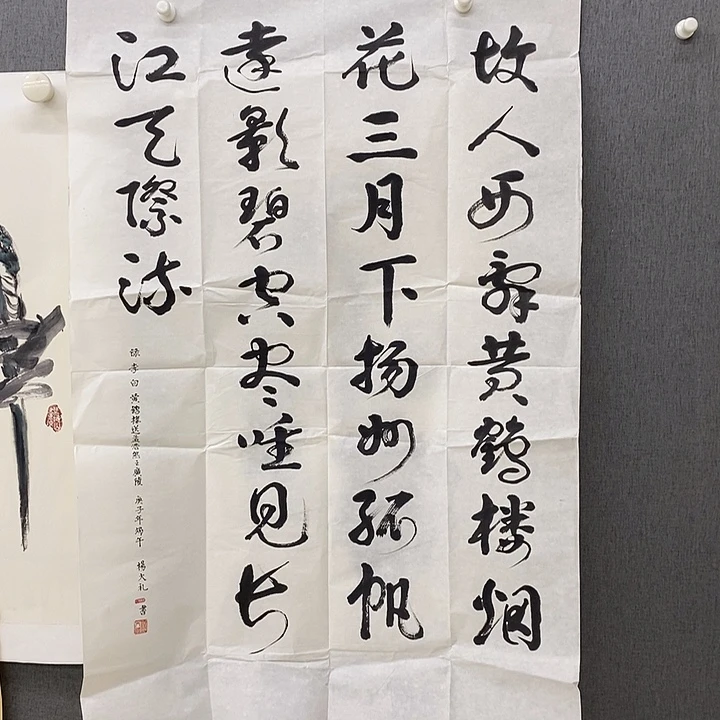 故人西辞黄鹤楼烟
花三月下扬州孤帆
远影碧空尽唯见长
江天际流
录李白黄鹤楼送孟浩然之廣陵 庚子年端午 楊大礼 書